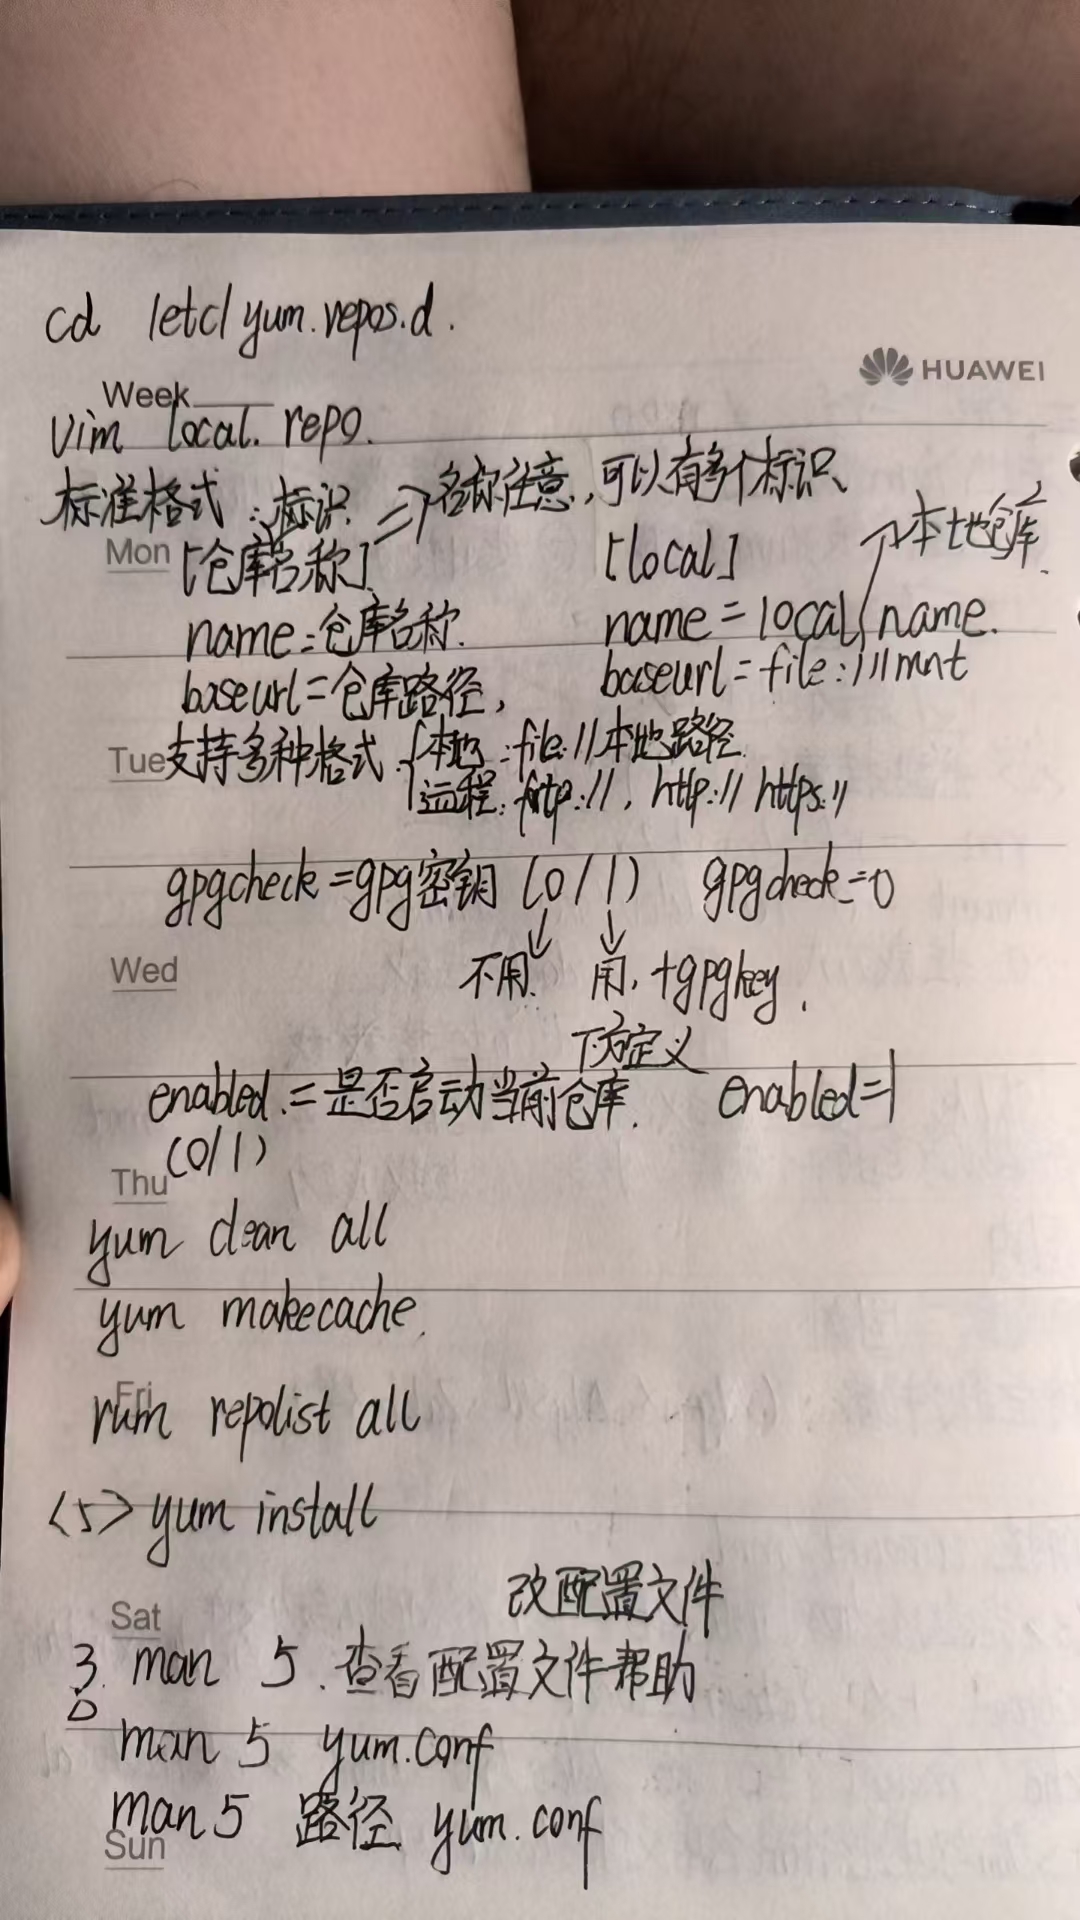 cd /etc/yum.repos.d.
HUAWEI
Week
vim local.repo.
标准格式:标识. => 名称任意,可以有多个标识
Mon [仓库名称] [local] 本地仓库.
name=仓库名称. name=local name.
baseurl=仓库路径, baseurl=file:///mnt
Tue 支持多种格式. 本地:file://本地路径.
远程:ftp://, http:// https://
gpgcheck=gpg密钥(0/1) gpgcheck=0
Wed 不用. 用,+gpgkey.
下方定义
enabled.=是否启动当前仓库. enabled=1
(0/1)
Thu
yum clean all
yum makecache.
Fri
rum repolist all
<5> yum install
改配置文件
Sat
3. man 5.查看配置文件帮助
man 5 yum.conf
man 5 路径 yum.conf
Sun